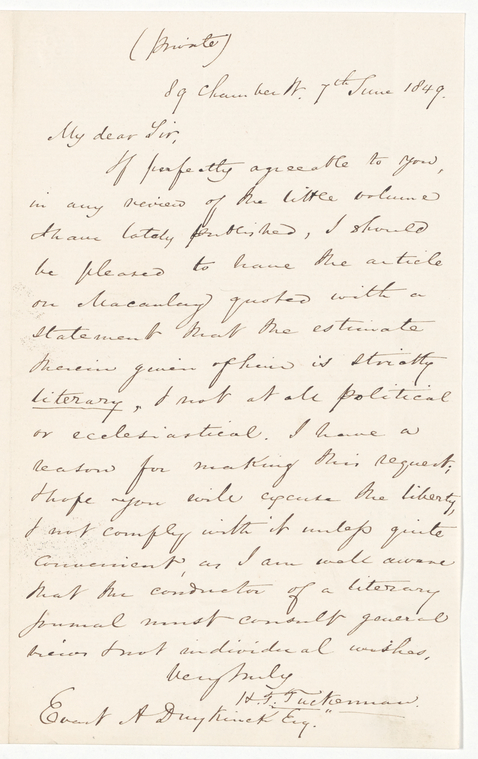 (private)
89 Chamber St. 7th June 1849.
My dear Sir,
If perfectly agreeable to you,
in any review of the little volume
I have lately published, I should
be pleased to have the article
on Macaulay quoted with a
statement that the estimate
therein given of him is strictly
literary, & not at all political
or ecclesiastical. I have a
reason for making this request;
I hope you will excuse the liberty,
& not comply with it unless quite
convenient, as I am well aware
that the conductor of a literary
journal must consult general
views & not individual wishes.
Very truly
H. T. Tuckerman.
Evert A Duyckinck Esq.